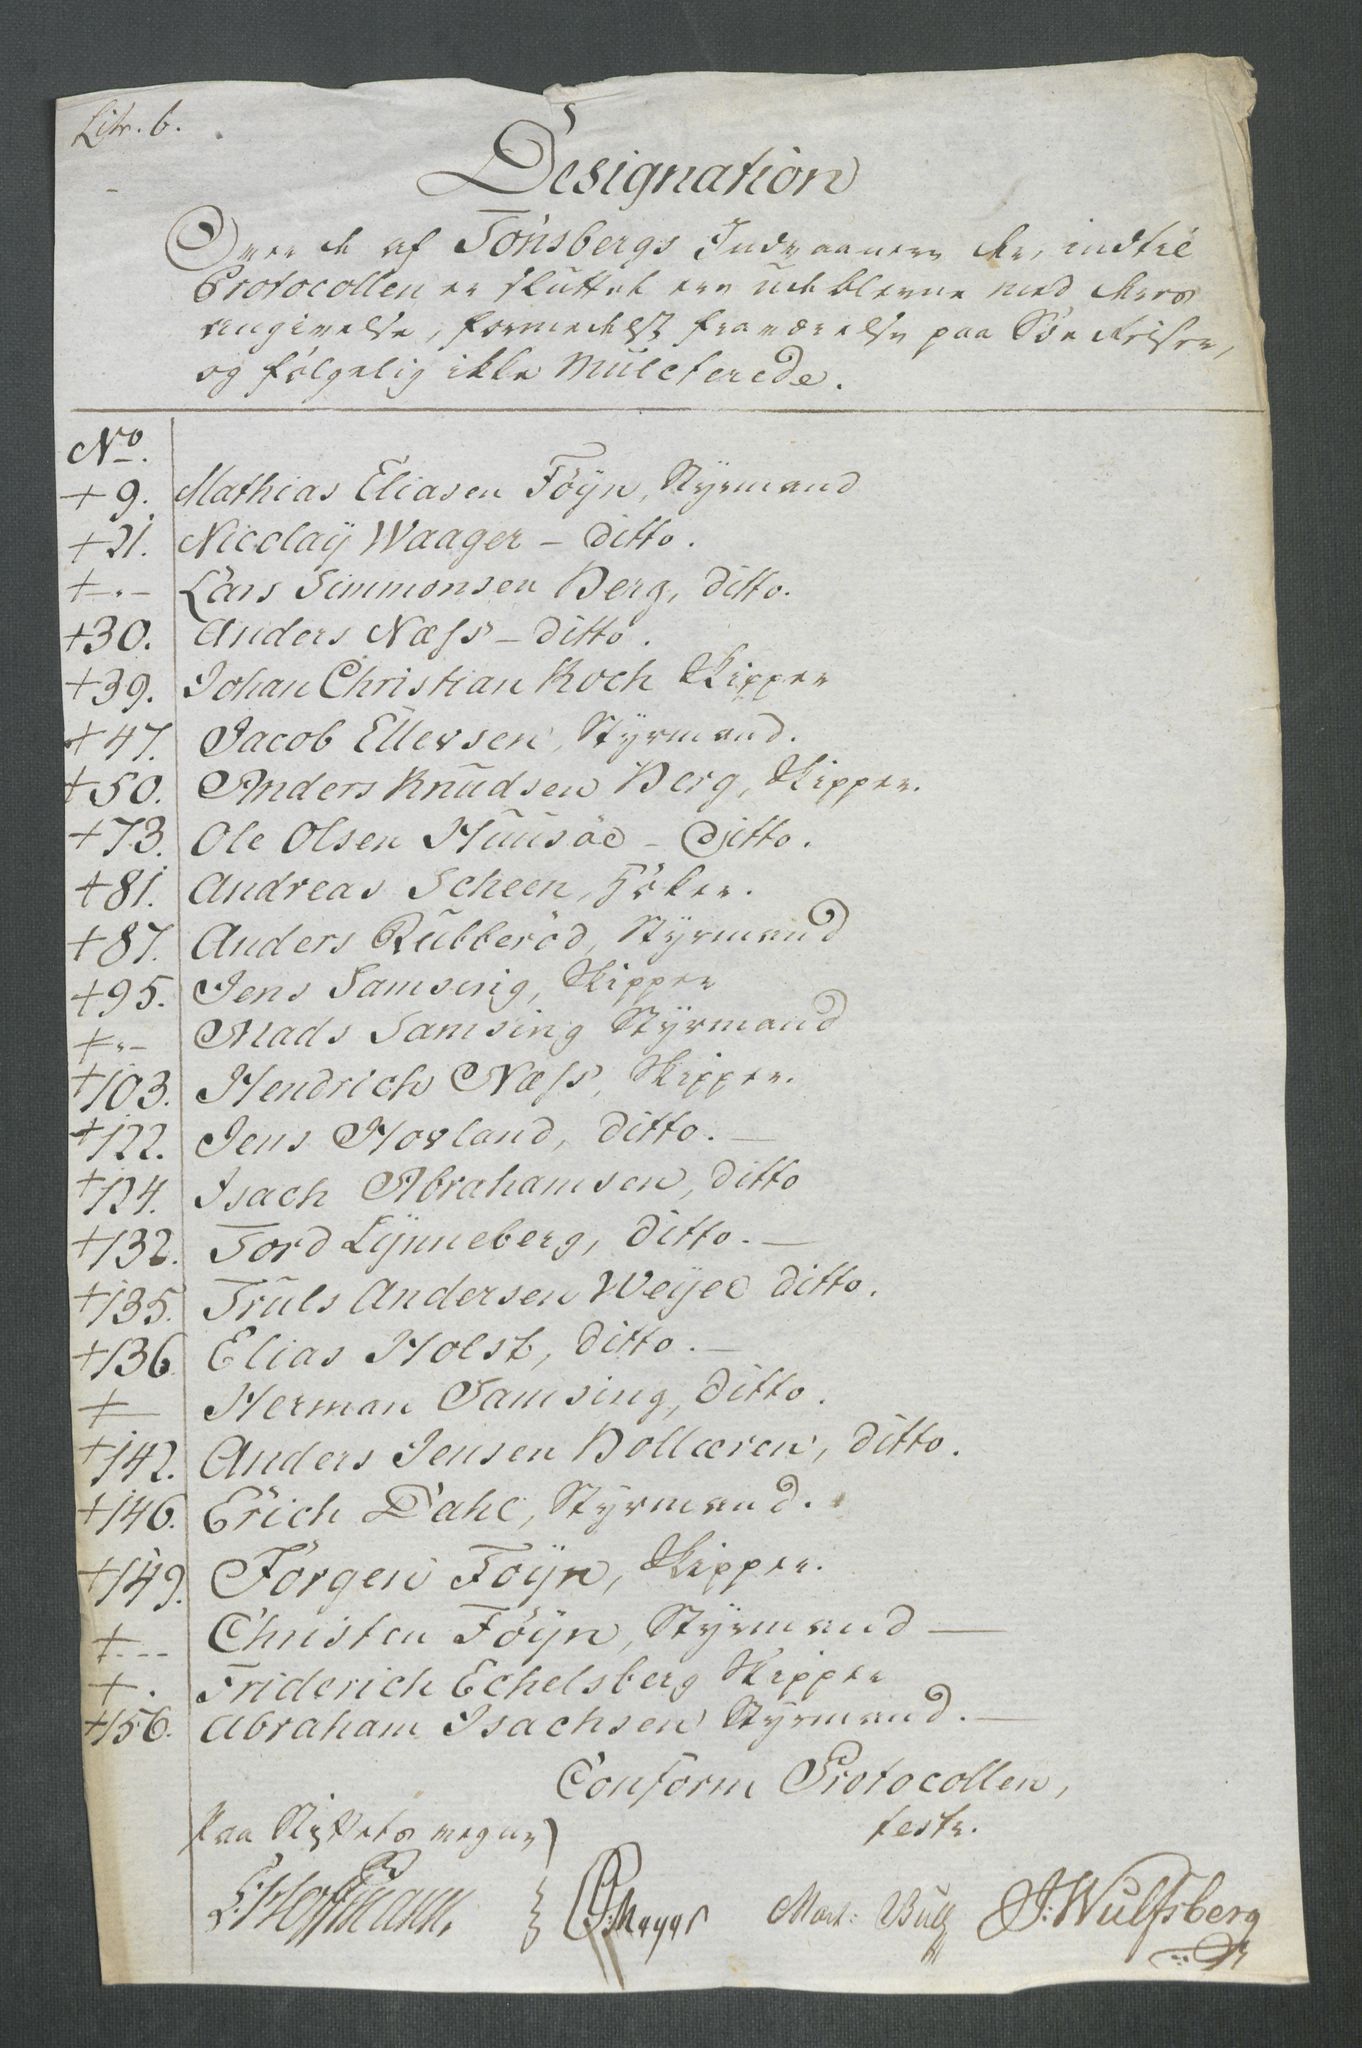 Litr. b.
Designation
Over de af Tönsbergs Indvaanere der, indtil
Protocollen er sluttet ere udeblevne med deres
Angivelse, formedelst fraværelse paa Söe Reiser,
og fölgelig ikke Mulcterede.
No.
+ 9. Mathias Eliasen Föÿn, Styrmand
+ 21. Nicolaÿ Waager - ditto.
+ - " - Lars Simmonsen Berg, ditto.
+ 30. Anders Næss - ditto.
+ 39. Johan Christian Koch Skipper
+ 47. Jacob Ellevsen, Styrmand.
+ 50. Anders Knudsen Berg, Skipper.
+ 73. Ole Olsen Huusöe - Ditto.
+ 81. Andreas Scheen, Höker.
+ 87. Anders Rubberöd, Styrmand
+ 95. Jens Samsing, Skipper
+ - " - Mads Samsing Styrmand
+ 103. Hendrich Næss, Skipper.
+ 122. Jens Hovland, ditto. —
+ 124. Isach Abrahamsen, ditto
+ 132. Tord Lÿnneberg, ditto. —
+ 135. Truls Andersen Weÿer ditto.
+ 136 Elias Holst, ditto. —
+ — Herman Samsing, ditto.
+ 142. Anders Jensen Bollæren, ditto.
+ 146. Erich Dahl, Styrmand.
+ 149. Jörgen Föÿn, Skipper.
+ - - - Christen Föÿn, Styrmand —
+ . Friderich Echelsberg Skipper
+ 156. Abraham Isachsen Styrmand. —
Conform Protocollen,
paa Stiftets vegne) teste.
Hoffmann. Meyer Mart: Bull J: Wulfsberg